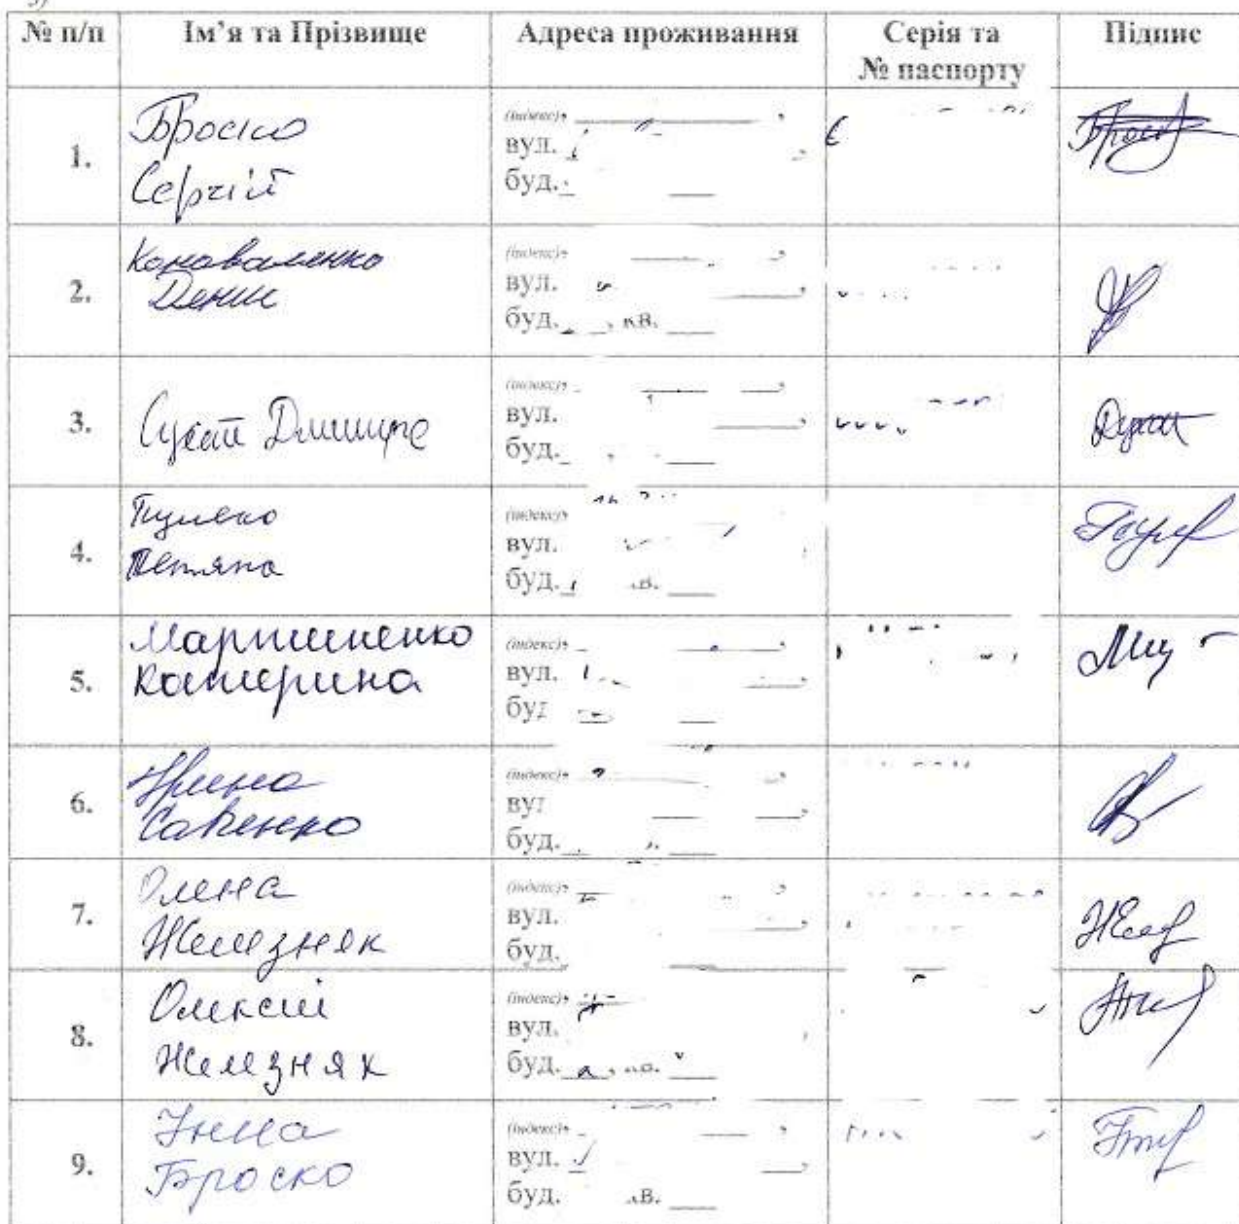 № п/п Ім’я та Прізвище Адреса проживання Серія та № паспорту Підпис
1. Броско Сергій (індекс), вул. буд.
2. Коноваленко Денис (індекс), вул. буд. , кв.
3. Сукач Дмитро (індекс), вул. буд.
4. Тетяна (індекс) вул. буд. кв.
5. Мартиненко Катерина (індекс), вул. буд.
6. Ірина Савченко (індекс), вул. буд.
7. Олена Железняк (індекс), вул. буд.
8. Олексій Железняк (індекс), вул. буд.
9. Інна Броско (індекс), вул. буд. кв.